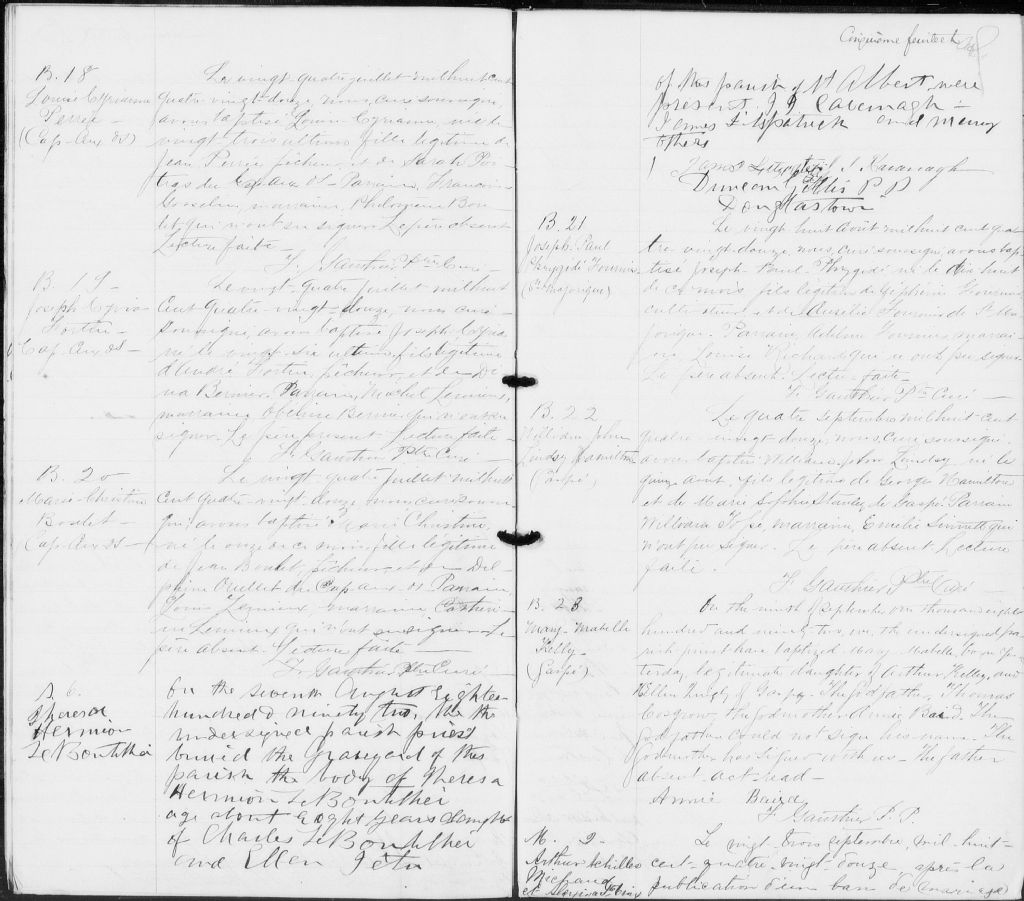 B. 18
Louise Cyrianne
Perrée
(Cap-Aux-Os)
Le vingt quatre juillet mil huit cent
quatre-vingt-douze, nous, curé soussigné,
avons baptisé Louise Cyrianne, née le
vingt trois ultimo, fille légitime de
Jean Perrée, pêcheur, et de Sarah
du Cap aux Os. Parrain, Francois
Gosselin, marraine, Philomène
qui n'ont su signer. Le père absent
Lecture faite—
F. Gauthier Ptre Curé—
B. 19
Joseph Cyria
Fortin
Cap-Aux-Os—
Le vingt-quatre juillet mil huit
cent quatre-vingt-douze, nous, curé
soussigné, avons baptisé Joseph Cyria
né le vingt-six ultimo, fils légitime
d'André Fortin, pêcheur, et de
Bernier. Parrain, Michel Lemieux,
marraine, Bernier, qui n'ont su
signer. Le père présent. Lecture faite—
F. Gauthier Ptre Curé—
B. 20
Marie-Christine
Boulet—
(Cap-Aux-Os—
Le vingt-quatre juillet mil huit
cent quatre-vingt-douze nous, curé sous
avons baptisé Marie Christine,
née le onze de ce mois, fille légitime
de Jean Boulet, pêcheur, et de Del-
phine Ouellet du Cap-aux-Os. Parrain,
Louis Lemieux, marraine Catheri-
ne Lemieux qui n'ont su signer. Le
père absent. Lecture faite—
F. Gauthier Ptre Curé
B. 6.
Theresa
Hermion
Le Bouthillier
On the seventh August Eighteen
hundred & ninety two, the
undersigned parish priest
buried the Graveyard of this
parish the body of Theresa
Hermion LeBouthillier
age about eight years daughter
of Charles LeBouthillier
and Ellen
Cinquième feuillet
of this parish of St Albert were
present J. J. Cavenagh—
James Fitzpatrick and many
others
James Fitzpatrick J. J. Kavanagh
Duncan Gillis P P
Douglastown
B. 21
Joseph Paul
Fournier
(St Majorique)
Le vingt huit Août mil huit cent qua-
tre-vingt-douze, nous, curé soussigné avons bap-
tisé Joseph-Paul- né le dix huit
de ce mois fils légitime de Fournier
cultivateur, et de Aurélie Fournier de St Ma-
jorique. Parrain, Fournier, marrai-
ne, Louise Richard qui n'ont su signer
Le père absent. Lecture faite—
F. Gauthier Ptre Curé—
B. 22
William John
Lindsy Hamilton
(Gaspé)
Le quatre septembre mil huit cent
quatre-vingt-douze, nous, curé soussigné
avons baptisé William John Lindsy, né le
quinze août, fils légitime de Georges Hamilton
et de Marie Sophie Stanley de Gaspé. Parrain
William, marraine, Emélie Sinnett qui
n'ont pu signer. Le père absent Lecture
faite.
F. Gauthier Ptre Curé—
B. 23
Mary-Mabelle
Kelly—
(Gaspé)
On the ninth of September one thousand eight
hundred and ninety-two, we, the undersigned pa-
rish priest have baptized Mary Mabelle, born yes-
terday, legitimate daughter of Arthur Kelly, and
Ellen of Gaspé. The godfather, Thomas
Cosgrove, the godmother Annie Baird. The
Godfather could not sign his name. The
Godmother has signed with us— The father
absent act read—
Annie Baird
F. Gauthier P. P.
M. 2.
Arthur Achilles
Michaud
et
Le vingt-trois septembre, mil-huit-
cent-quatre-vingt-douze, après la
publication d'un ban de mariage